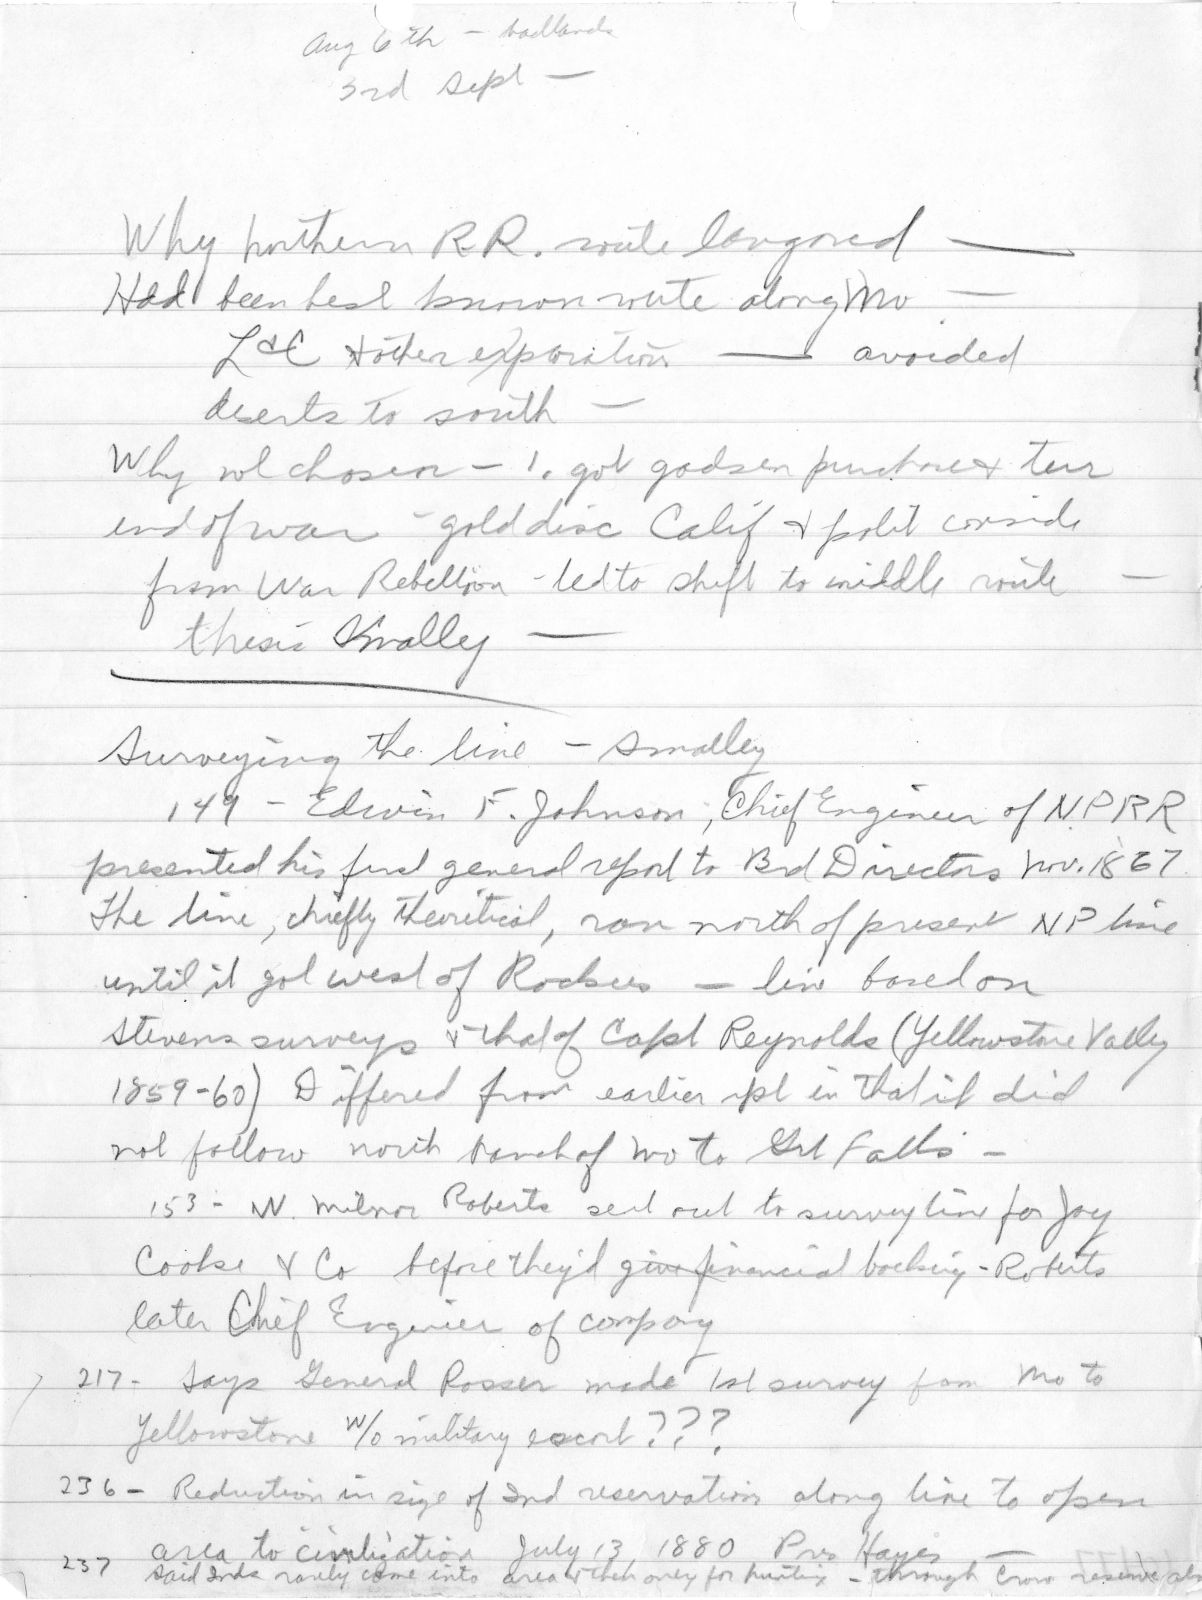 Aug 6th - badlands
3rd Sept -
Why northern R.R. route
Had been best known route along Mo -
L&C & other exploration — avoided
deserts to south -
Why not chosen - 1. got gadsen purchase & terr
end of war - gold disc Calif & polit conside
from War Rebellion - led to shift to middle route -
thesis Smalley —
Surveying the line - Smalley
149 - Edwin F. Johnson, Chief Engineer of N.P.R.R
presented his first general report to Brd Directors Nov. 1867.
The line, chiefly theoritical, ran north of present NP line
until it got west of Rockies - line based on
Stevens surveys & that of Capt Reynolds (Yellowstone Valley
1859-60) Differed from earlier rpt in that it did
not follow north branch of Mo to Grt Falls -
153 - W. Milnor Roberts sent out to survey line for Jay
Cooke & Co before they'd give financial backing - Roberts
later Chief Engineer of company
217 - Says General Rosser made 1st survey from Mo to
Yellowstone w/o military escort???
236 - Reduction in size of Ind reservations along line to open
area to civilization July 13, 1880 Pres Hayes -
237 said Inds rarely came into area & then only for hunting - through Crow reserve also